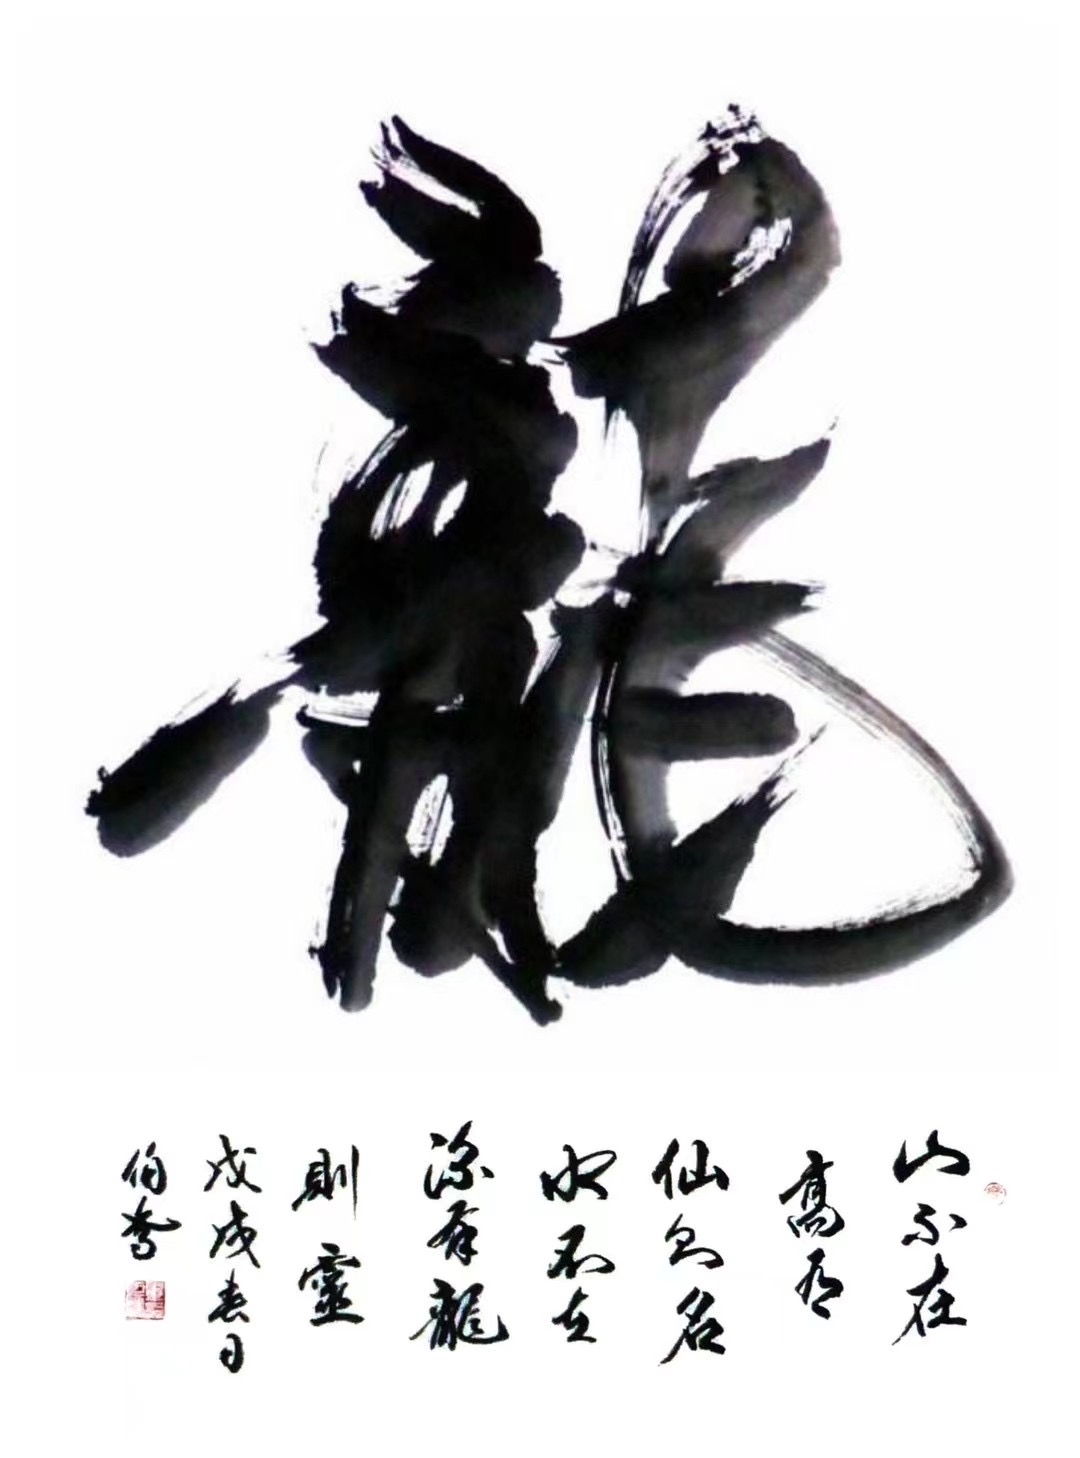 龍
山不在
高有
仙則名
水不在
深有龍
則靈
戊戌春日
伯鶩